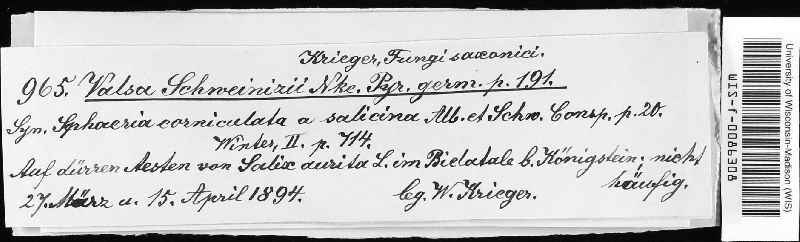 Krieger, Fungi saxonici.
965. Valsa Schweinizii Nke. Pyr. germ. p. 191.
Syn. Sphaeria corniculata a salicina Alb. et Schw. Consp. p. 20.
Winter, II. p. 714.
Auf dürren Aesten von Salix aurita L. im Bielatale b. Königstein; nicht
häufig.
27. März u. 15. April 1894. leg. W. Krieger.
University of Wisconsin-Madison (WIS)